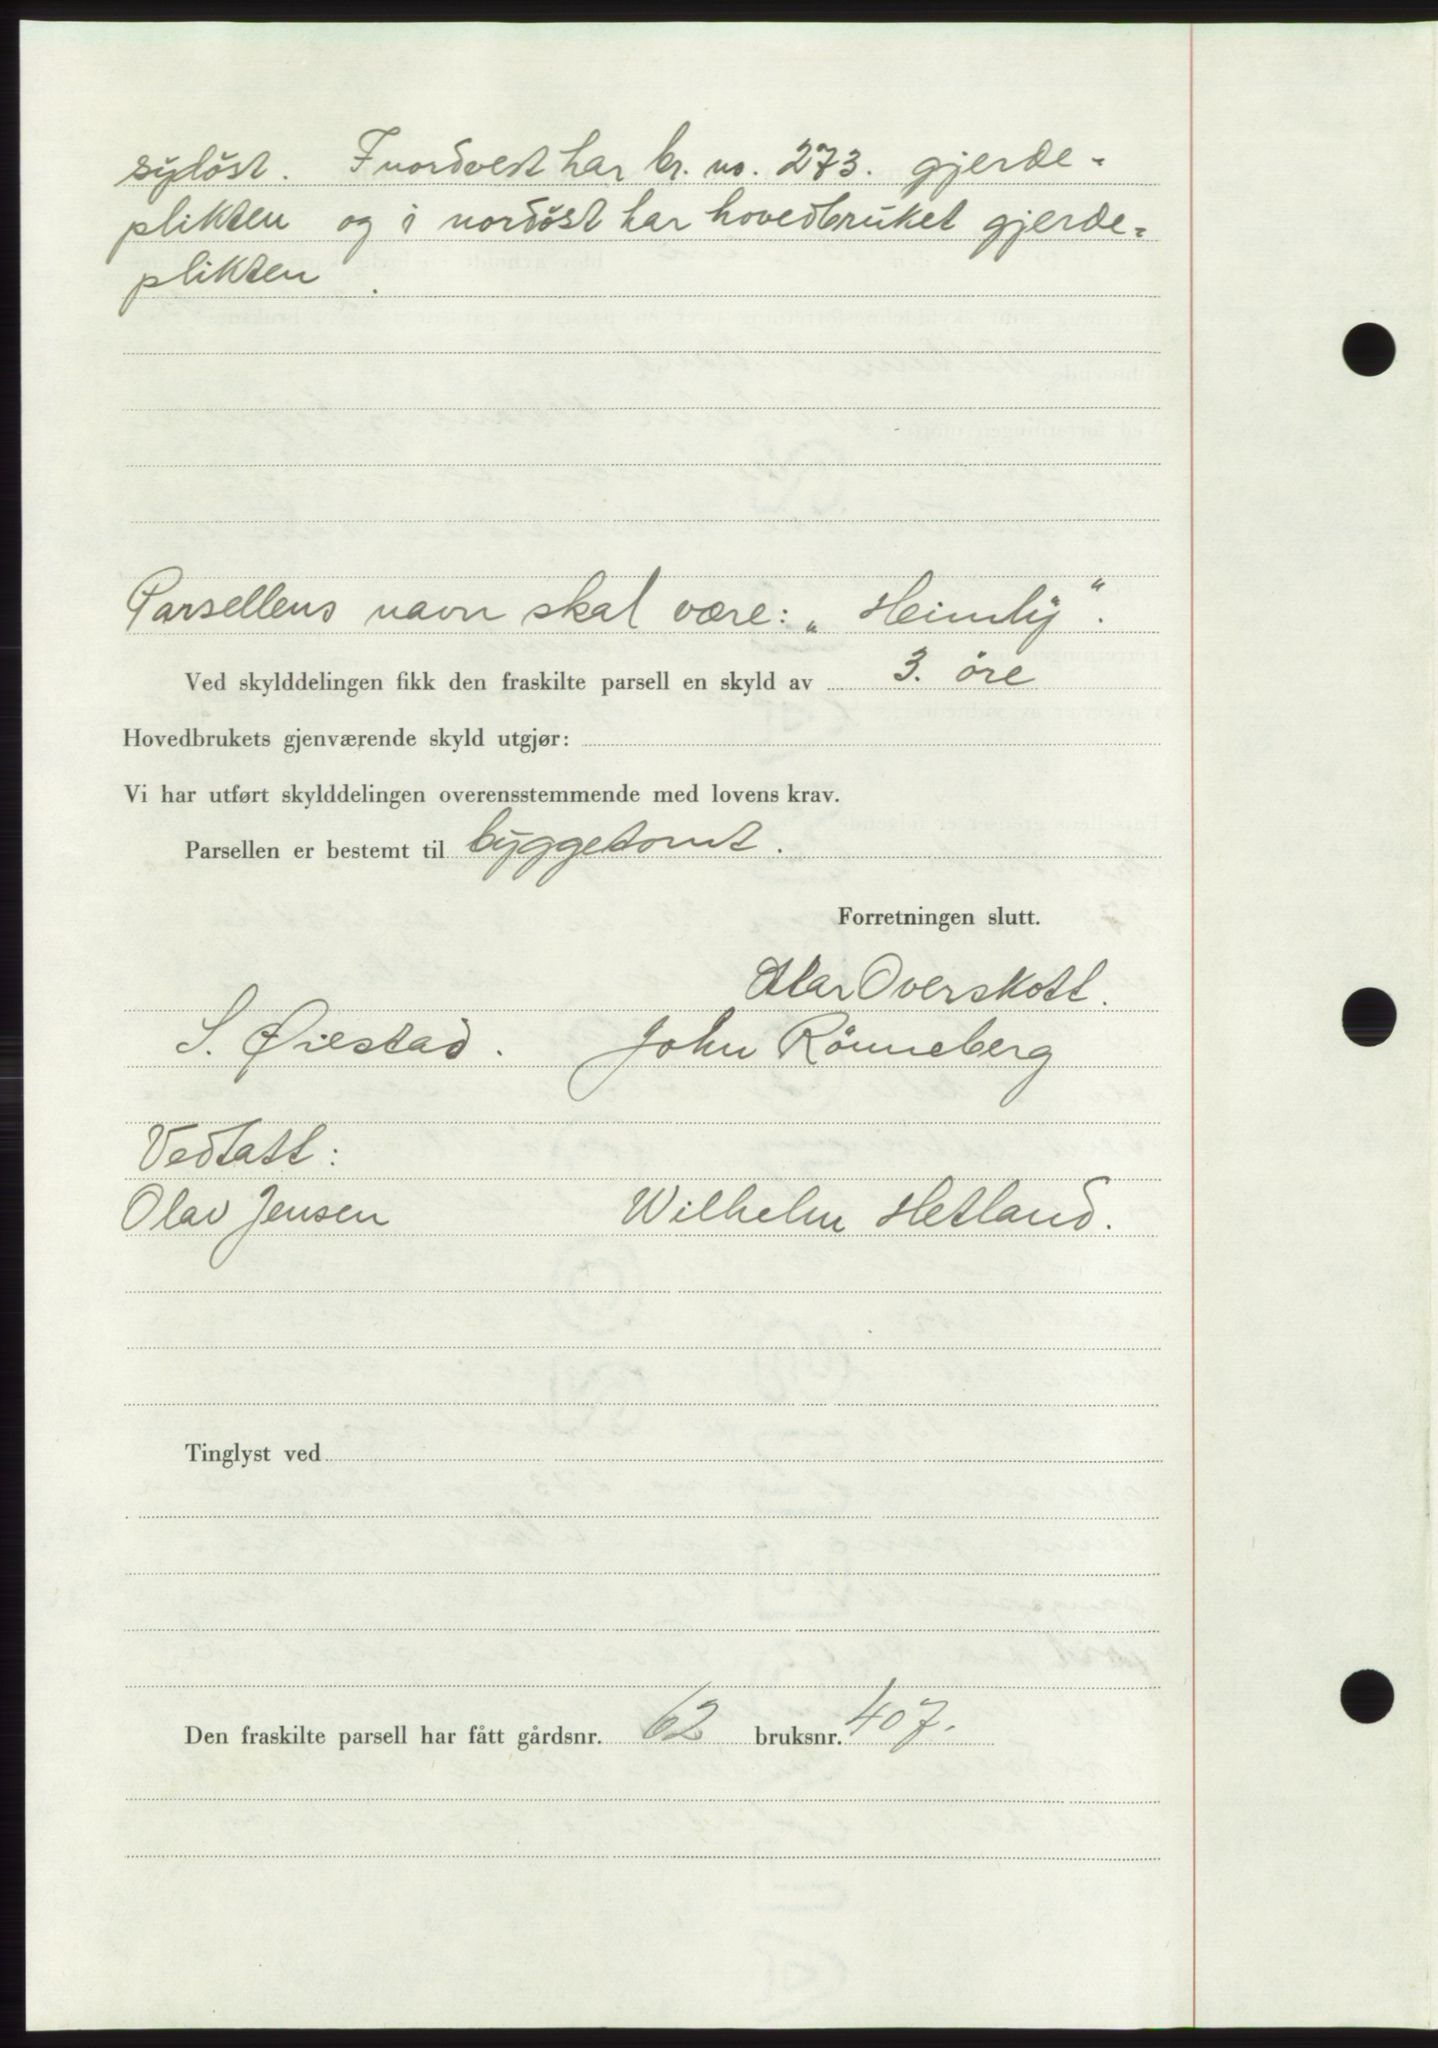 sydöst. I nordvest har br. no. 273. gjerde-
plikten og i nordöst har hovedbruket gjerde-
plikten.
Parsellens navn skal være: „Heimly“.
Ved skylddelingen fikk den fraskilte parsell en skyld av 3. öre
Hovedbrukets gjenværende skyld utgjør:
Vi har utført skylddelingen overensstemmende med lovens krav.
Parsellen er bestemt til byggetomt.
Forretningen slutt.
Olav Overskott.
S. Øiestad. John Rönneberg
Vedtatt:
Olav Jensen Wilhelm Hetland.
Tinglyst ved
Den fraskilte parsell har fått gårdsnr. 62 bruksnr. 407.